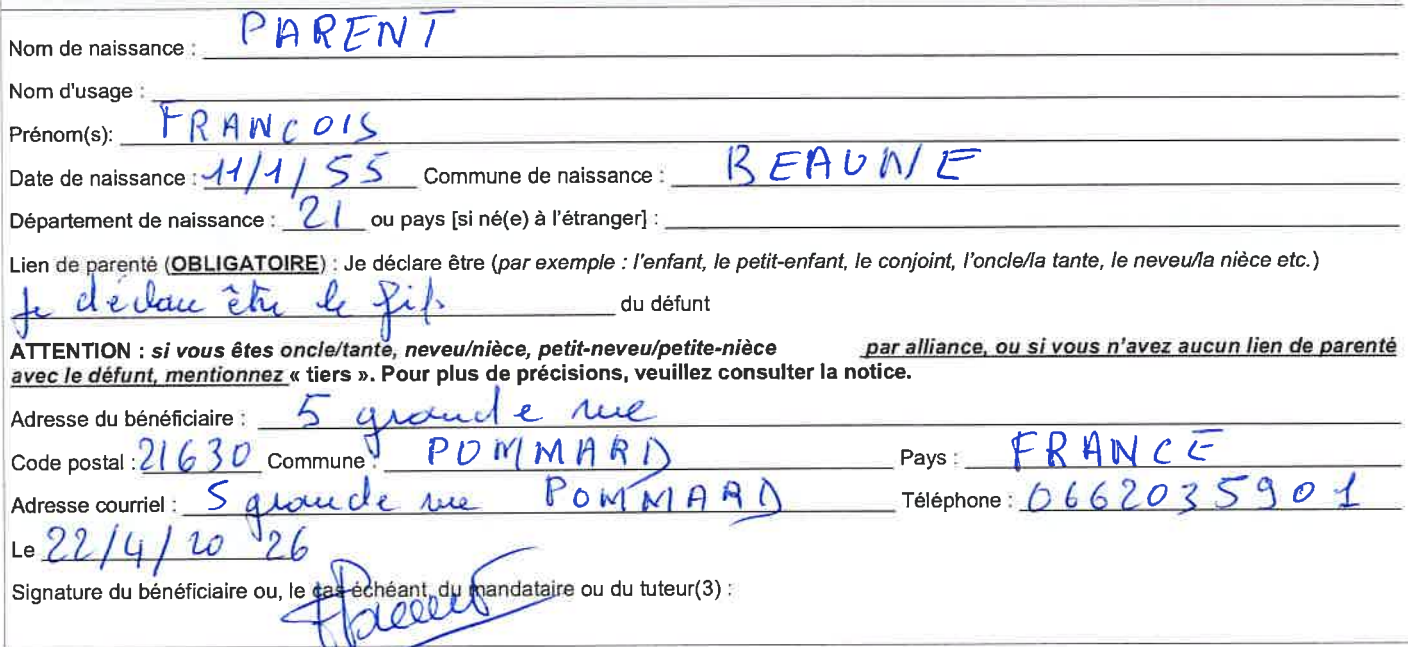 Nom de naissance : PARENT
Nom d'usage :
Prénom(s): FRANCOIS
Date de naissance : 11/1/55 Commune de naissance : BEAUNE
Département de naissance : 21 ou pays [si né(e) à l'étranger] :
Lien de parenté (OBLIGATOIRE) : Je déclare être (par exemple : l'enfant, le petit-enfant, le conjoint, l'oncle/la tante, le neveu/la nièce etc.)
Je déclare être le fils du défunt
ATTENTION : si vous êtes oncle/tante, neveu/nièce, petit-neveu/petite-nièce par alliance, ou si vous n'avez aucun lien de parenté
avec le défunt, mentionnez « tiers ». Pour plus de précisions, veuillez consulter la notice.
Adresse du bénéficiaire : 5 grande rue
Code postal : 21630 Commune : POMMARD Pays : FRANCE
Adresse courriel : 5 grande rue POMMARD Téléphone : 0662035901
Le 22/4/2026
Signature du bénéficiaire ou, le cas échéant, du mandataire ou du tuteur(3) :